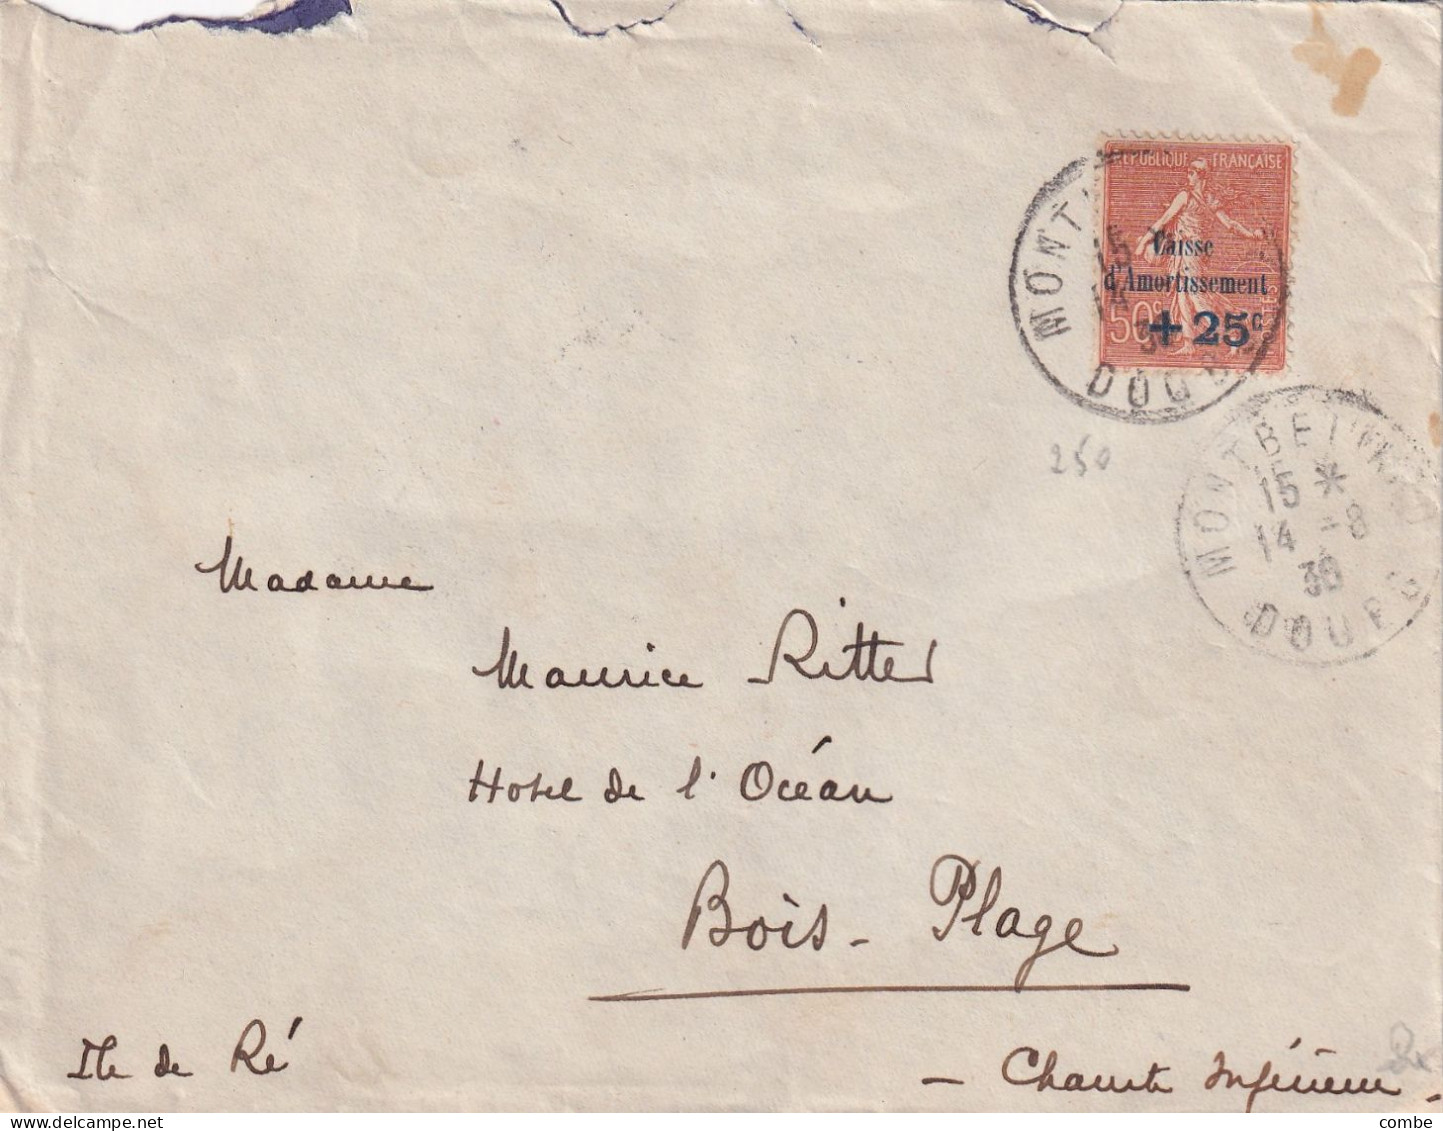 REPUBLIQUE FRANÇAISE
Caisse
d'Amortissement
50c + 25c
MONT
15
14
3
DOUB
250
MONTBELIARD
15 *
14 - 8
30
DOUBS
Madame
Maurice Ritter
Hotel de l'Océan
Bois-Plage
Ile de Ré
- Charente Inférieure -
combe